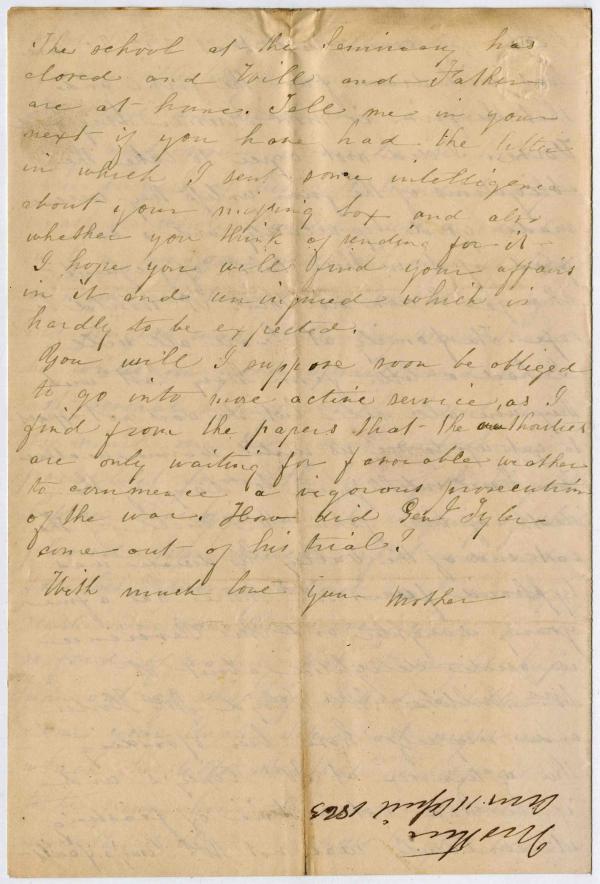 The school at the Seminary has
closed and Will and Father
are at home. Tell me in your
next if you have had the letter
in which I sent some intelligence
about your missing box and also
whether you think of sending for it –
I hope you will find your affairs
in it and uninjured which is
hardly to be expected.
You will I suppose soon be obliged
to go into more active service, as I
find from the papers that the authorities
are only waiting for favorable weather
to commence a vigorous prosecution
of the war. How did Genl Tyler
come out of his trial?
With much love your Mother
Mother
April 1863